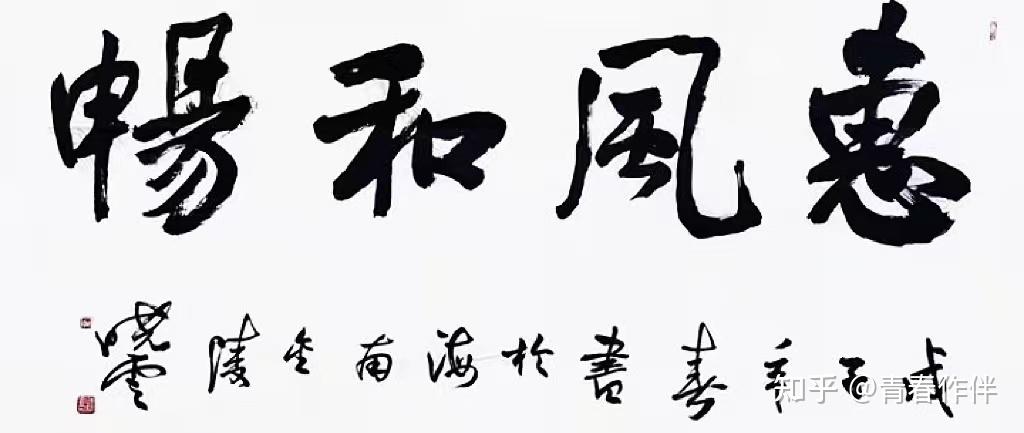 惠風和暢
戊子年春書於海南金陵
曉雲
知乎 @青春作伴